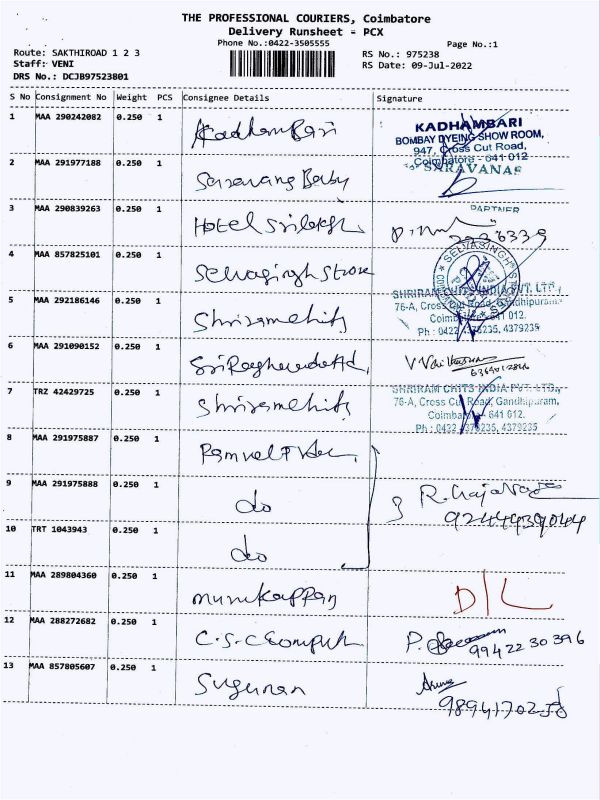 THE PROFESSIONAL COURIERS, Coimbatore
Delivery Runsheet - PCX
Phone No.:0422-3505555
Page No.:1
Route: SAKTHIROAD 1 2 3
RS No.: 975238
Staff: VENI
RS Date: 09-Jul-2022
DRS No.: DCJB97523801
S No Consignment No Weight PCS Consignee Details Signature
1 MAA 290242082 0.250 1 Kadhambari
KADHAMBARI
BOMBAY DYEING SHOW ROOM,
947, Cross Cut Road,
Coimbatore - 641 012
2 MAA 291977188 0.250 1 Saravana Baby
SARAVANAS
PARTNER
3 MAA 290839263 0.250 1 Hotel
4 MAA 857825101 0.250 1 Selvasingh Store
SELVASINGH'S
5 MAA 292186146 0.250 1 Shriram chits
SHRIRAM CHITS INDIA PVT. LTD.,
76-A, Cross Cut Road, Gandhipuram,
Coimbatore - 641 012.
Ph : 0422 4376235, 4379235
6 MAA 291090152 0.250 1
7 TRZ 42429725 1 0.250 Shriram chits
SHRIRAM CHITS INDIA PVT. LTD.,
76-A, Cross Cut Road, Gandhipuram,
Coimbatore - 641 012.
Ph : 0422 4376235, 4379235
8 MAA 291975887 0.250 1
9 MAA 291975888 0.250 1 do
10 TRT 1043943 0.250 1 do
9244439044
11 MAA 289804360 0.250 1 murukappan D/L
12 MAA 288272682 0.250 1 C.S.C Computer P.
9942230396
13 MAA 857805607 0.250 1 Sugunan
9894170258